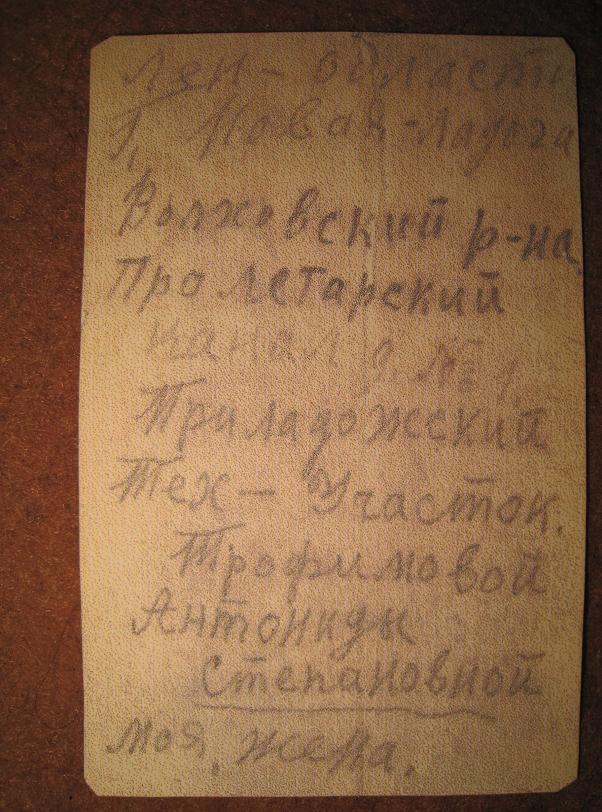 Лен- области
г. Новая-Ладога
Волховский р-на
Пролетарский
канал д. № 1.
Приладожский
Тех- Участок.
Трофимовой
Антониды
Степановной
моя, жена.